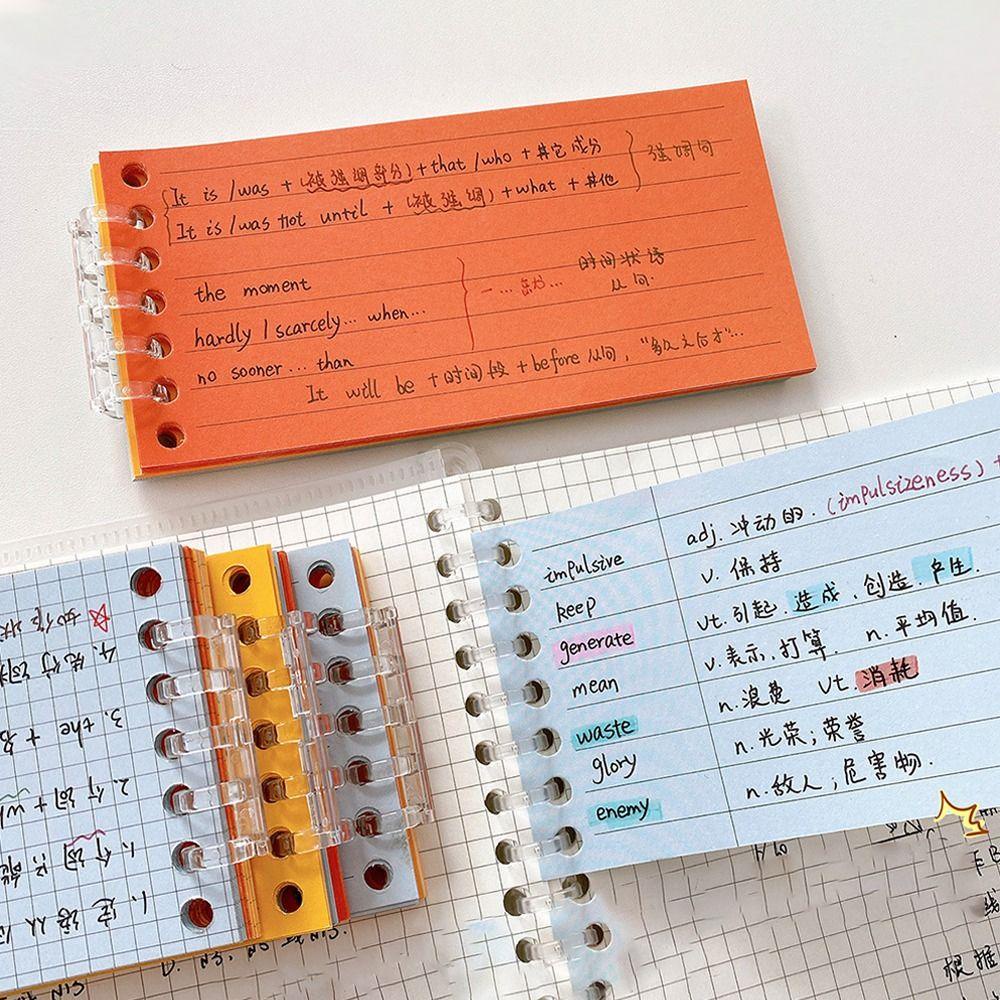 It is /was + (被强调部分) + that /who + 其它成分
It is /was not until + (被强调) + what + 其他
强调句
the moment
hardly / scarcely... when...
no sooner... than
一...就...
时间状语
从句.
It will be + 时间段 + before 从句, "多久之后才"...
impulsive adj. 冲动的. (impulsizeness)
keep v. 保持
generate vt. 引起、造成、创造、产生
mean v. 表示、打算 n. 平均值.
waste n. 浪费 vt. 消耗
glory n. 光荣; 荣誉
enemy n. 敌人; 危害物.
3. the + 名
2. 介词 + wh
1. 介词只能
1. 定语从
根据
线